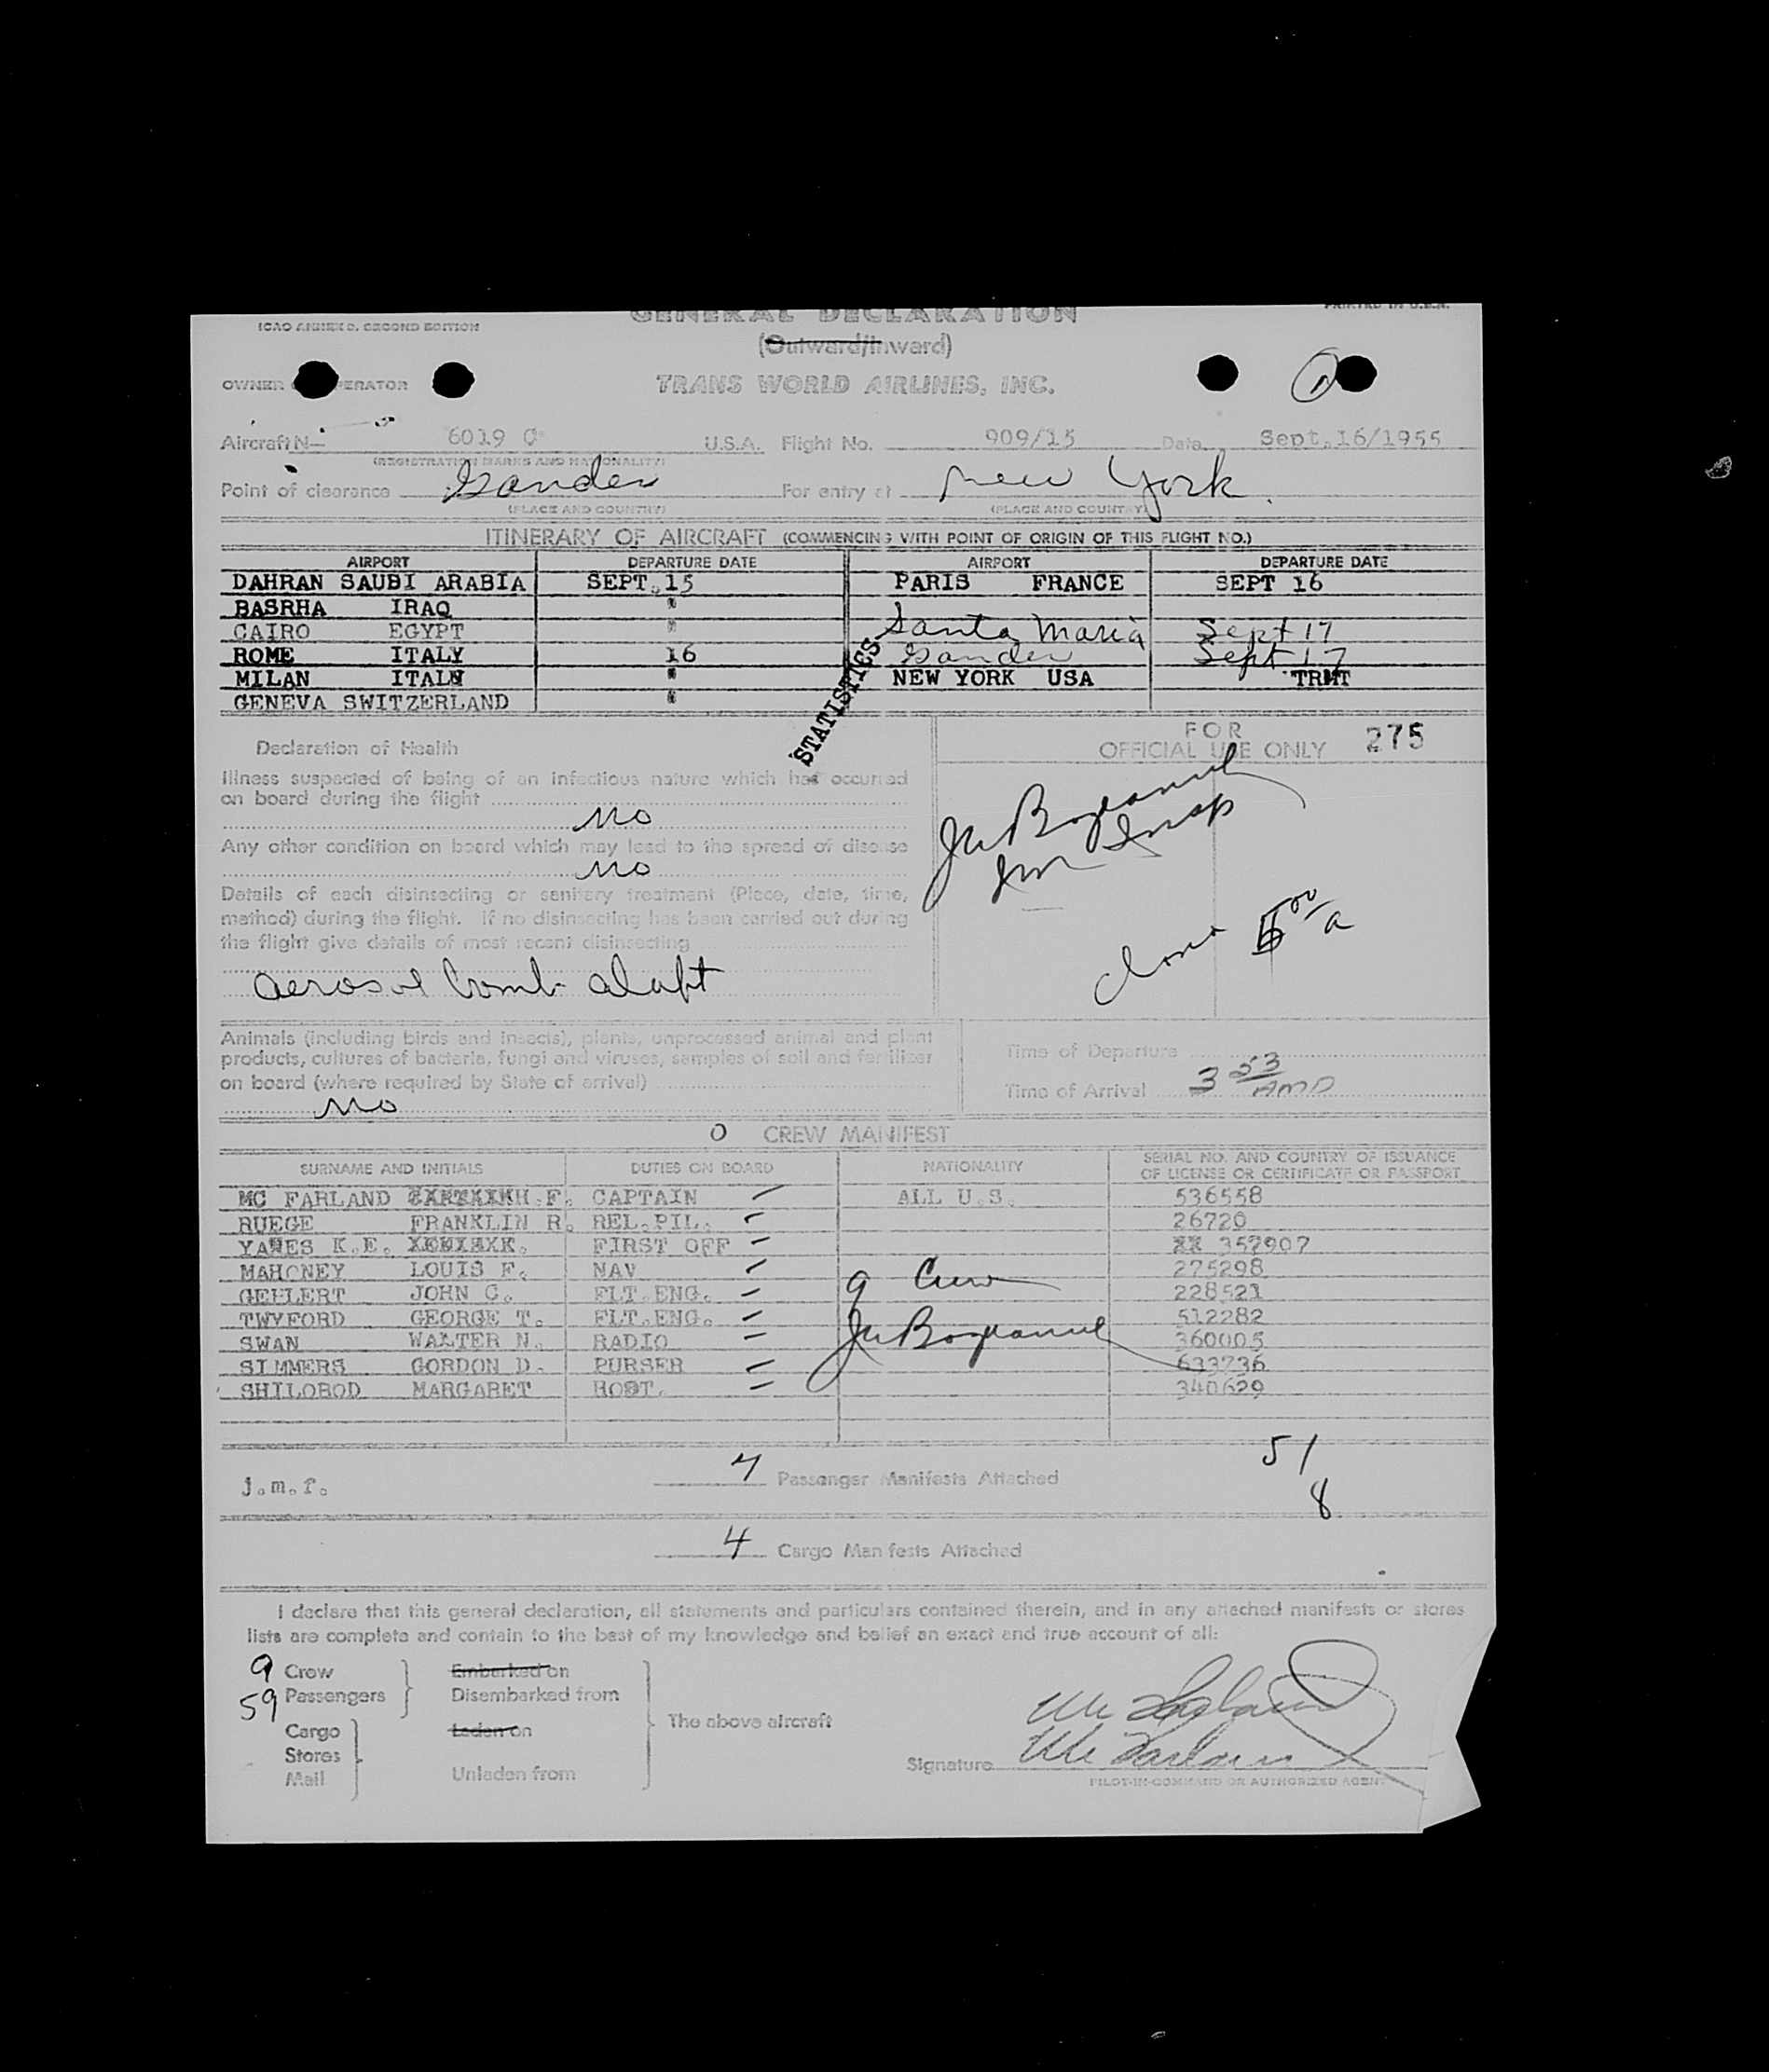 GENERAL DECLARATION
PRINTED IN U.S.A.
ICAO ANNEX 9, SECOND EDITION
(Outward/Inward)
OWNER PERATOR
TRANS WORLD AIRLINES, INC.
Aircraft N— 6019 C U.S.A. Flight No. 909/15 Date Sept.16/1955
(REGISTRATION MARKS AND NATIONALITY)
Point of clearance Gander For entry at New York
(PLACE AND COUNTRY) (PLACE AND COUNTRY)
ITINERARY OF AIRCRAFT (COMMENCING WITH POINT OF ORIGIN OF THIS FLIGHT NO.)
AIRPORT DEPARTURE DATE AIRPORT DEPARTURE DATE
DAHRAN SAUDI ARABIA SEPT.15 PARIS FRANCE SEPT 16
BASRHA IRAQ "
CAIRO EGYPT " Santa Maria Sept 17
ROME ITALY 16 Gander Sept 17
MILAN ITALY " NEW YORK USA TRMT
GENEVA SWITZERLAND "
STATISTICS
FOR
OFFICIAL USE ONLY 275
Declaration of Health
Illness suspected of being of an infectious nature which has occurred
on board during the flight
No
Any other condition on board which may lead to the spread of disease
No
Details of each disinsecting or sanitary treatment (Place, date, time,
method) during the flight. If no disinsecting has been carried out during
the flight give details of most recent disinsecting
aerosol bomb
Imm Insp
00 a
Animals (including birds and insects), plants, unprocessed animal and plant
products, cultures of bacteria, fungi and viruses, samples of soil and fertilizer
on board (where required by State of arrival)
No
Time of Departure
Time of Arrival 3 53
O CREW MANIFEST
SURNAME AND INITIALS DUTIES ON BOARD NATIONALITY SERIAL NO. AND COUNTRY OF ISSUANCE
OF LICENSE OR CERTIFICATE OR PASSPORT
MC FARLAND H.F. CAPTAIN ALL U.S. 536558
RUEGE FRANKLIN R. REL.PIL. 26720
YATES K.E. FIRST OFF 357907
MAHONEY LOUIS F. NAV 275298
GEHLERT JOHN C. FLT.ENG. 228521
TWYFORD GEORGE T. FLT.ENG. 512282
SWAN WALTER N. RADIO 360005
SIMMERS GORDON D. PURSER 633736
SHILOBOD MARGARET HOST. 340629
9 Crew
j.m.f.
7 Passenger Manifests Attached
51
8
4 Cargo Manifests Attached
I declare that this general declaration, all statements and particulars contained therein, and in any attached manifests or stores
lists are complete and contain to the best of my knowledge and belief an exact and true account of all:
9 Crew Embarked on
59 Passengers Disembarked from
Cargo Laden on The above aircraft
Stores
Mail Unladen from
Signature Mc Farland
PILOT-IN-COMMAND OR AUTHORIZED AGENT